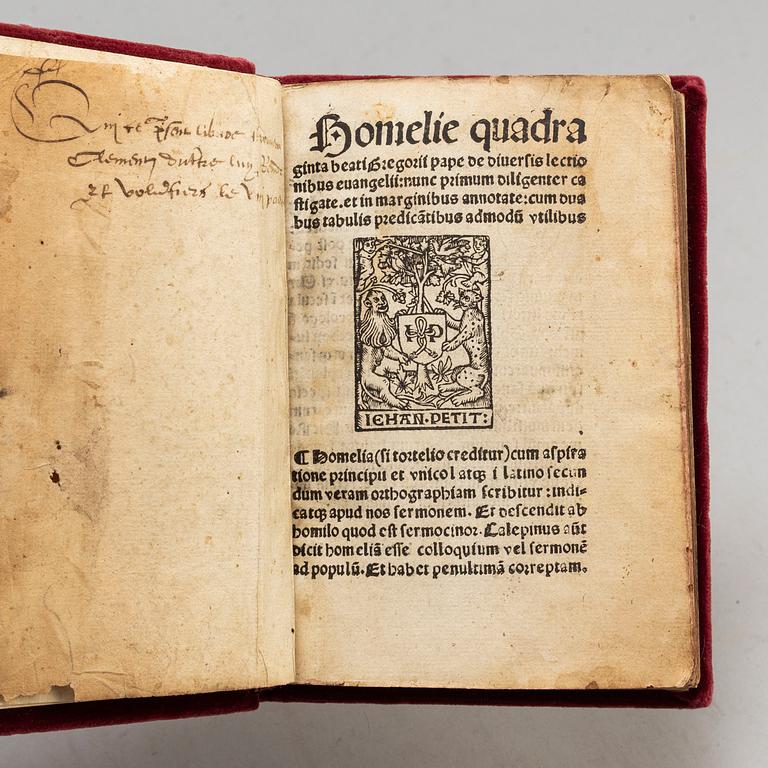 Clement
Homelie quadra
ginta beati Gregorii pape de diuersis lectio
nibus euangelii: nunc primum diligenter ca
stigate. et in marginibus annotate: cum dua
bus tabulis predicãtibus admodũ vtilibus
IEHAN·PETIT:
¶ Homelia (si tortelio creditur) cum aspira
tione principii et vnico l atqꝫ i latino secun
dum veram orthographiam scribitur: indi-
catqꝫ apud nos sermonem. Et descendit ab
homilo quod est sermocinor. Calepinus aũt
dicit homeliã esse colloquium vel sermonẽ
ad populũ. Et habet penultimã correptam.